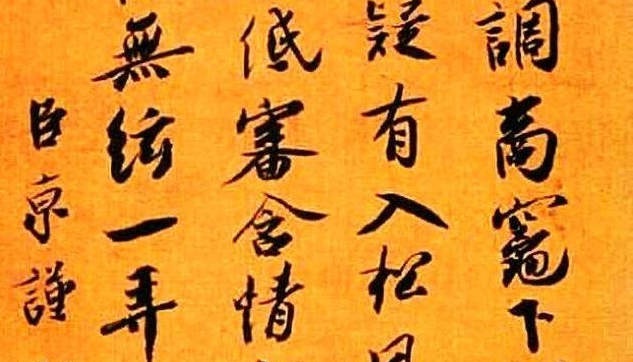 調商竈下
疑有入松
低審含情
無絃一弄
臣京謹